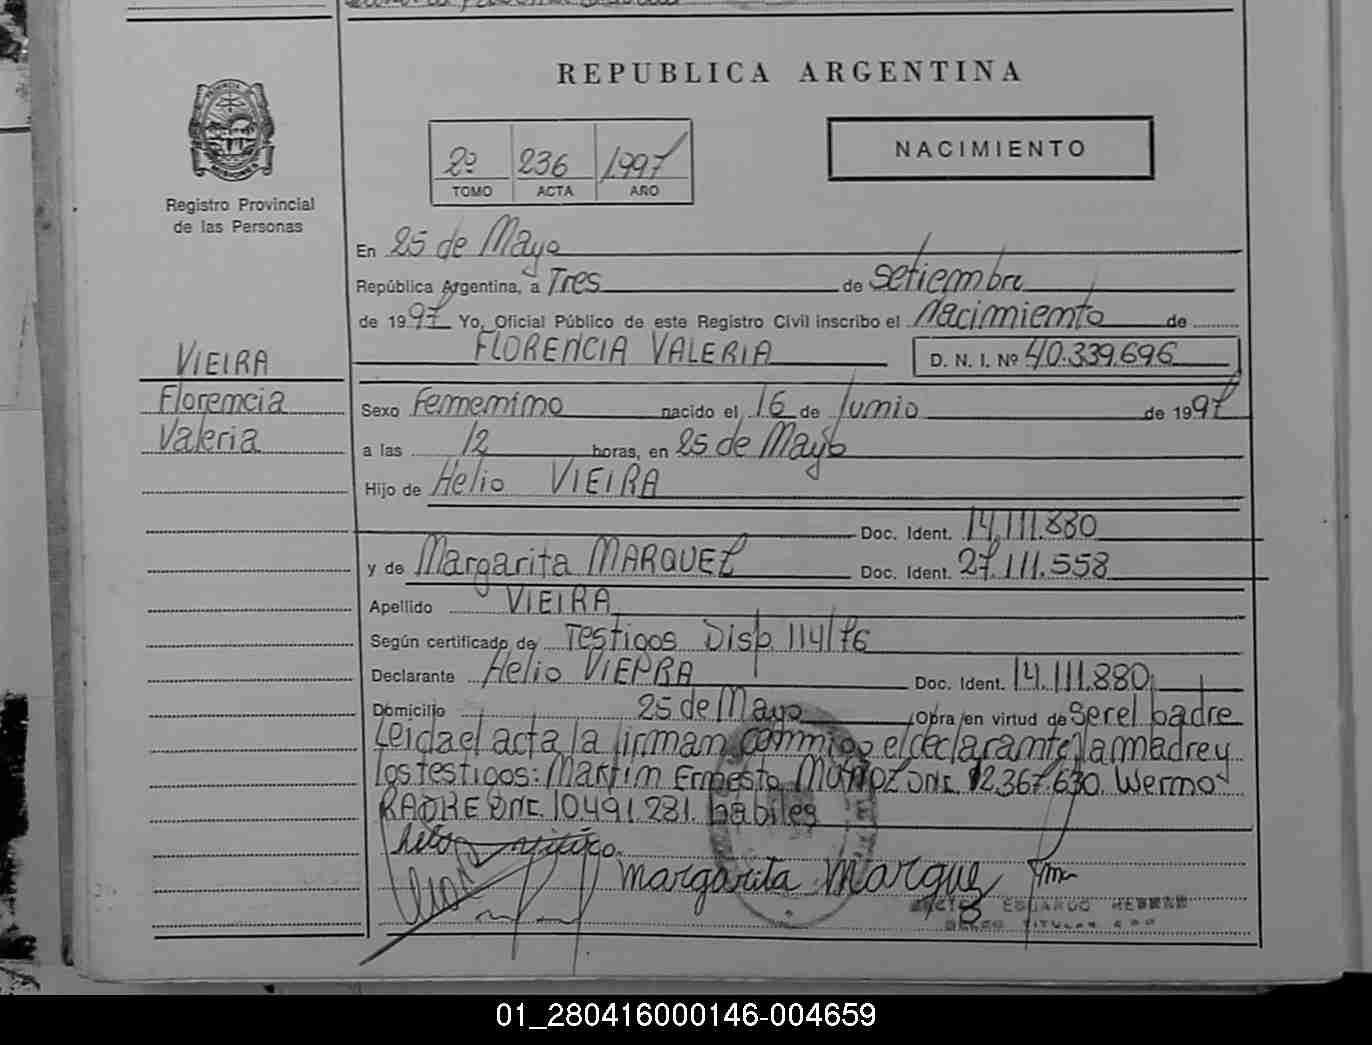 REPUBLICA ARGENTINA
NACIMIENTO
2º 236 1997
TOMO ACTA AÑO
Registro Provincial
de las Personas
En 25 de Mayo
República Argentina, a Tres de setiembre
de 1997 Yo, Oficial Público de este Registro Civil inscribo el Nacimiento de
FLORENCIA VALERIA D. N. I. Nº 40.339.696
VIEIRA
Florencia
Valeria
Sexo Femenino nacido el 16 de Junio de 1997
a las 12 horas, en 25 de Mayo
Hijo de Helio VIEIRA
Doc. Ident. 14.111.880
y de Margarita MARQUEZ Doc. Ident. 27.111.558
Apellido VIEIRA
Según certificado de Testigos Disp. 114/76
Declarante Helio VIEIRA Doc. Ident. 14.111.880
Domicilio 25 de Mayo Obra en virtud de ser el padre
Leida el acta la firman conmigo el declarante, la madre y
los testigos: Martin Ernesto MUÑOZ DNI. 12.367.630. Werno
RADKE DNI. 10.491.281. habiles
margarita Marquez
EDUARDO
TITULAR
01_280416000146-004659